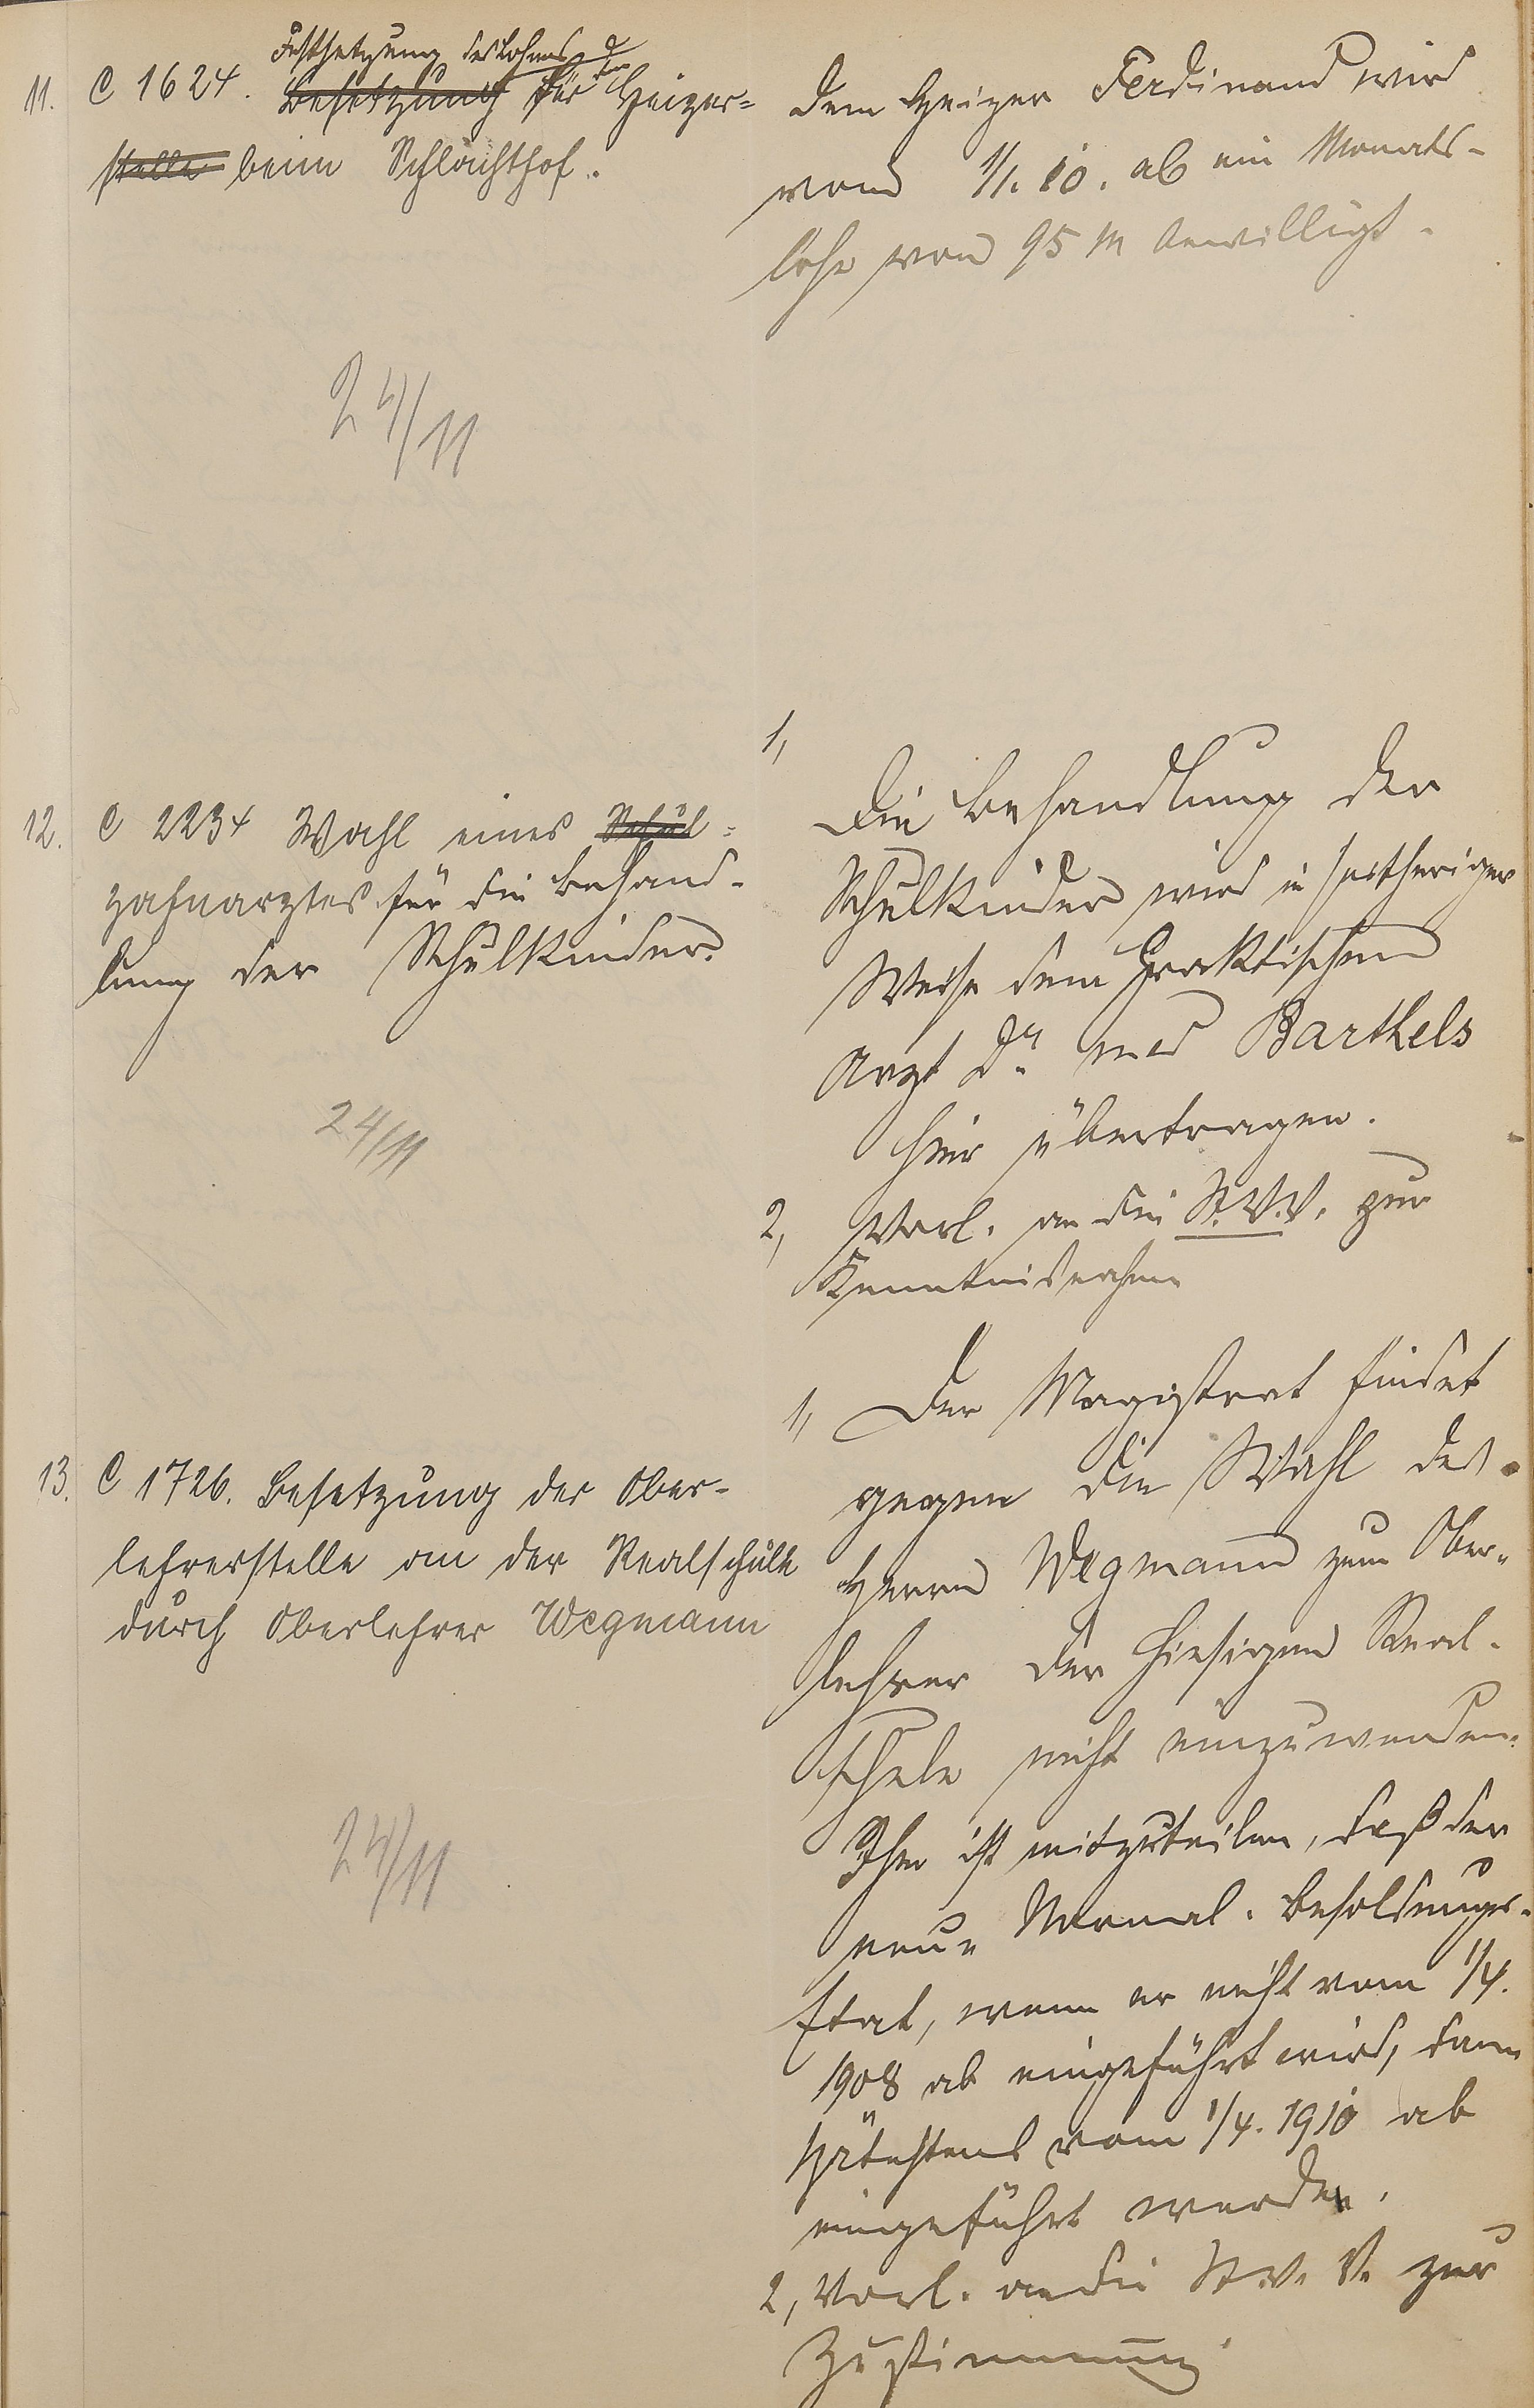 11. C 1624. Festsetzung des Lohns
Besetzung für den Heizer=
stelle beim Schlachthof.
24/11
Dem Heizer Ferdinand wird
vom 1/1. 10. ab ein Monats-
lohn von 95 M bewilligt.
12. C 2234 Wahl eines Schul=
zahnarztes für die Behand-
lung der Schulkinder.
24/11
1, Die Behandlung der
Schulkinder wird in seitheriger
Weise dem praktischen
Arzt Dr. med Barthels
hier übertragen.
2, Vorl. an die St.V.V. zur
Kenntnisnahme
13. C 1726. Besetzung der Ober-
lehrerstelle an der Realschule
durch Oberlehrer Wegmann
24/11
1, Der Magistrat findet
gegen die Wahl des
Herrn Wegmann zum Ober-
lehrer der hiesigen Real-
schule nicht einzuwenden.
Ihm ist mitzuteilen, daß der
neue Normal-Besoldungs-
Etat, wenn er nicht vom 1/4.
1908 ab eingeführt wird, dann
spätestens vom 1/4. 1910 ab
eingeführt werde.
2, Vorl. an die St.V.V. zur
Zustimmung